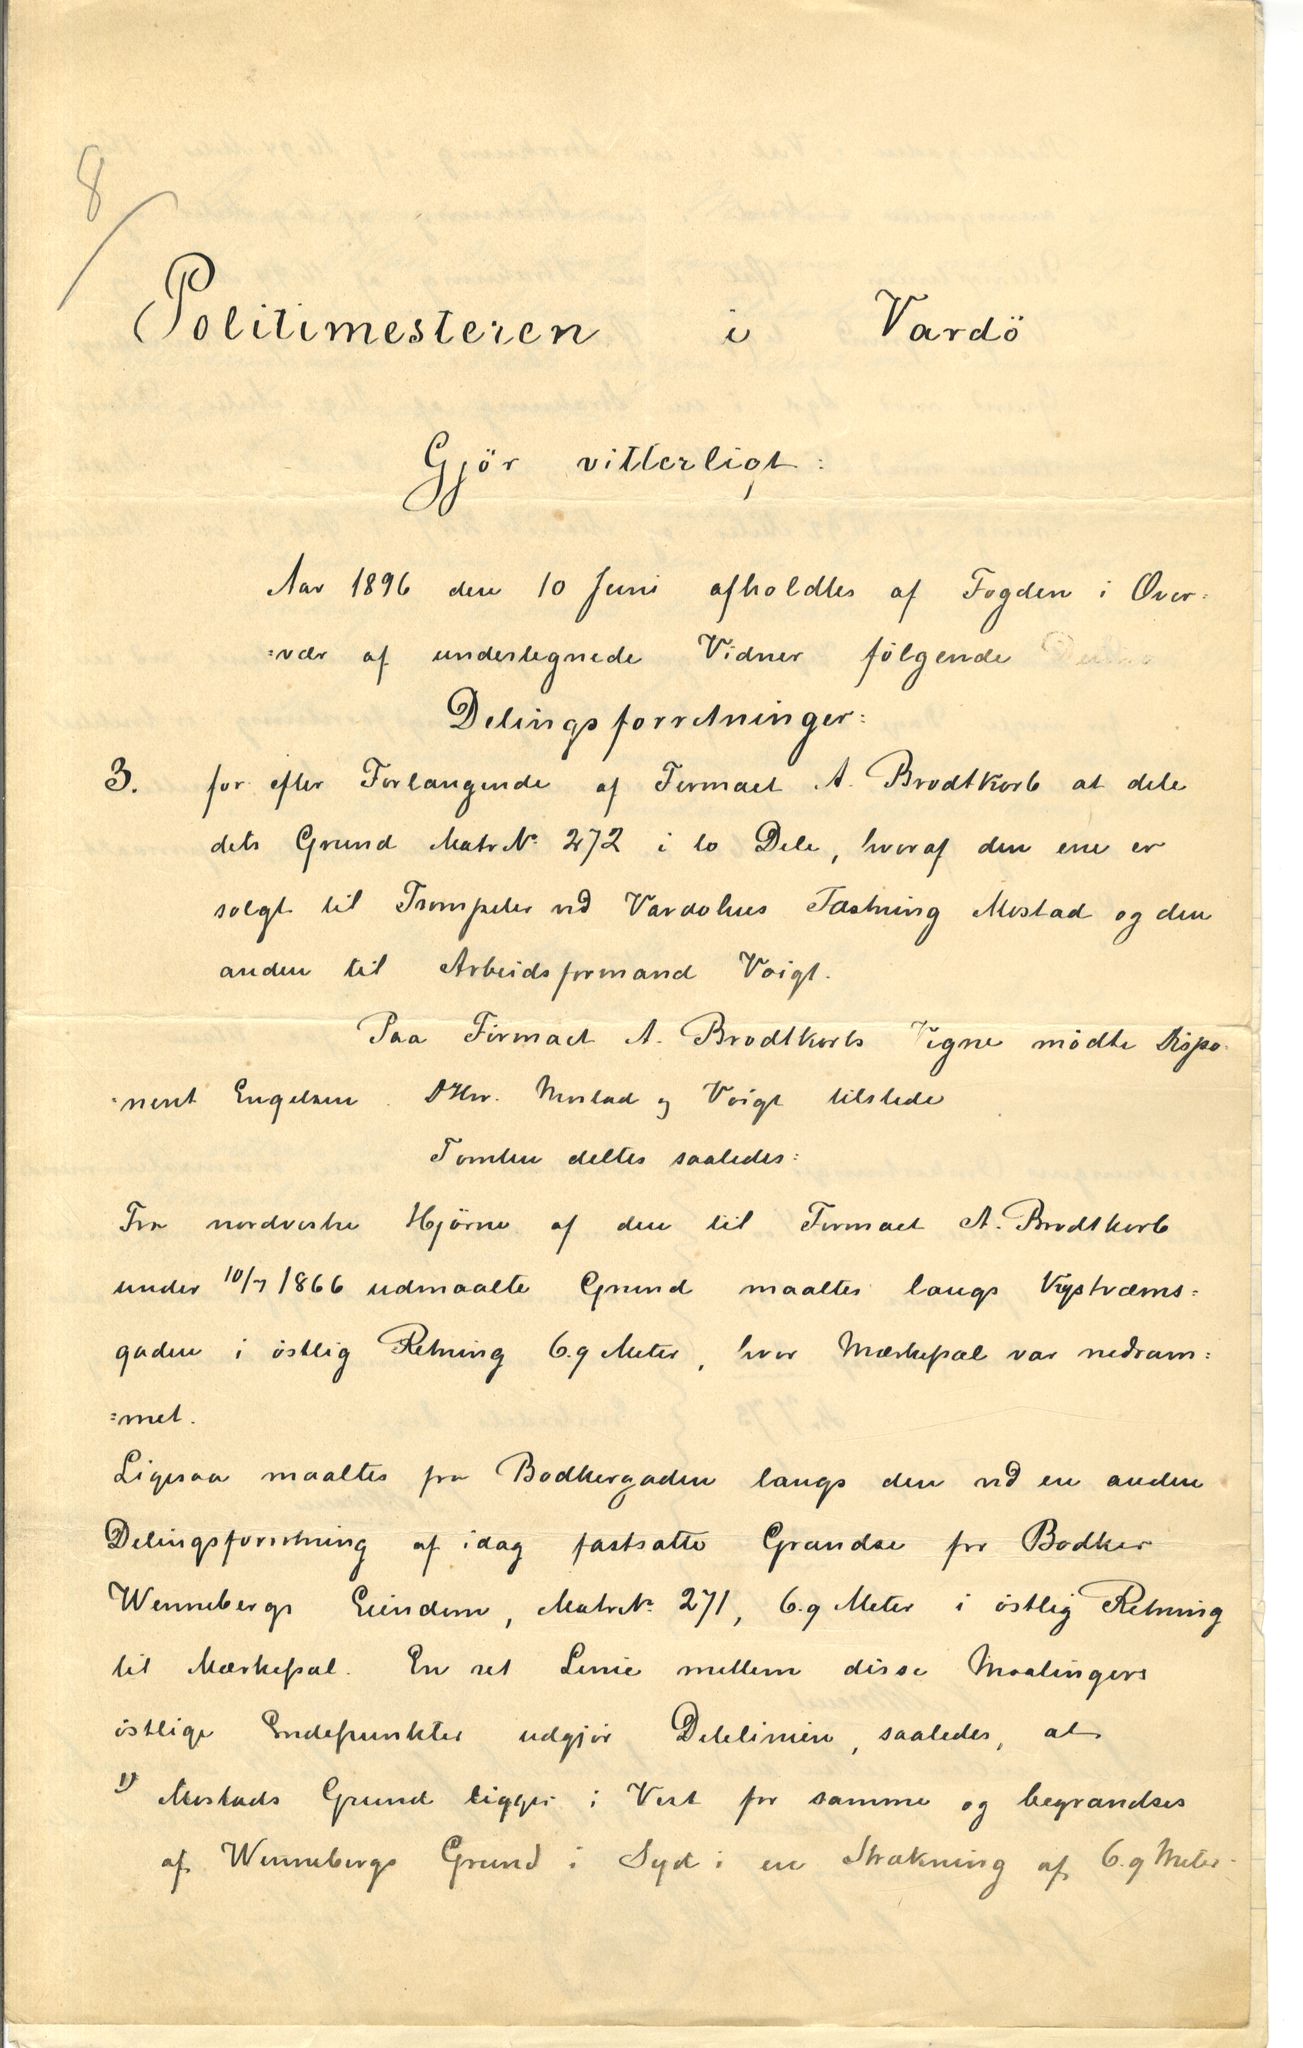 8
Politimesteren i Vardö
Gjör vitterligt:
Aar 1896 den 10 Juni afholdtes af Fogden i Over=
=vær af undertegnede Vidner følgende
Delingsforretninger:
3. for efter Forlangende af Firmaet A. Brodtkorb at dele
dets Grund Matr No 272 i to Dele, hvoraf den ene er
solgt til Trompeter ved Vardøhus Fæstning Mostad og den
anden til Arbeidsformand Voigt.
Paa Firmaet A. Brodtkorbs Vegne mødte Dispo=
=nent Engelsen. DHrr. Mostad og Voigt tilstede
Tomten deltes saaledes:
Fra nordvestre Hjörne af den til Firmaet A. Brodtkorb
under 10/7 1866 udmaalte Grund maaltes langs
gaden i östlig Retning 6.9 Meter, hvor Mærkepæl var nedram=
=met.
Ligesaa maaltes fra Bødkergaden langs den ved en anden
Delingsforretning af idag fastsatte Grændse for Bødker
Wennebergs Eiendom, Matr No 271, 6.9 Meter i östlig Retning
til Mærkepæl. En ret Linie mellem disse Maalingers
östlige Endepunkter udgjör Delelinien, saaledes, at
1) Mostads Grund ligger i Vest for samme og begrændses
af Wennebergs Grund i Syd i en Strækning af 6.9 Meter